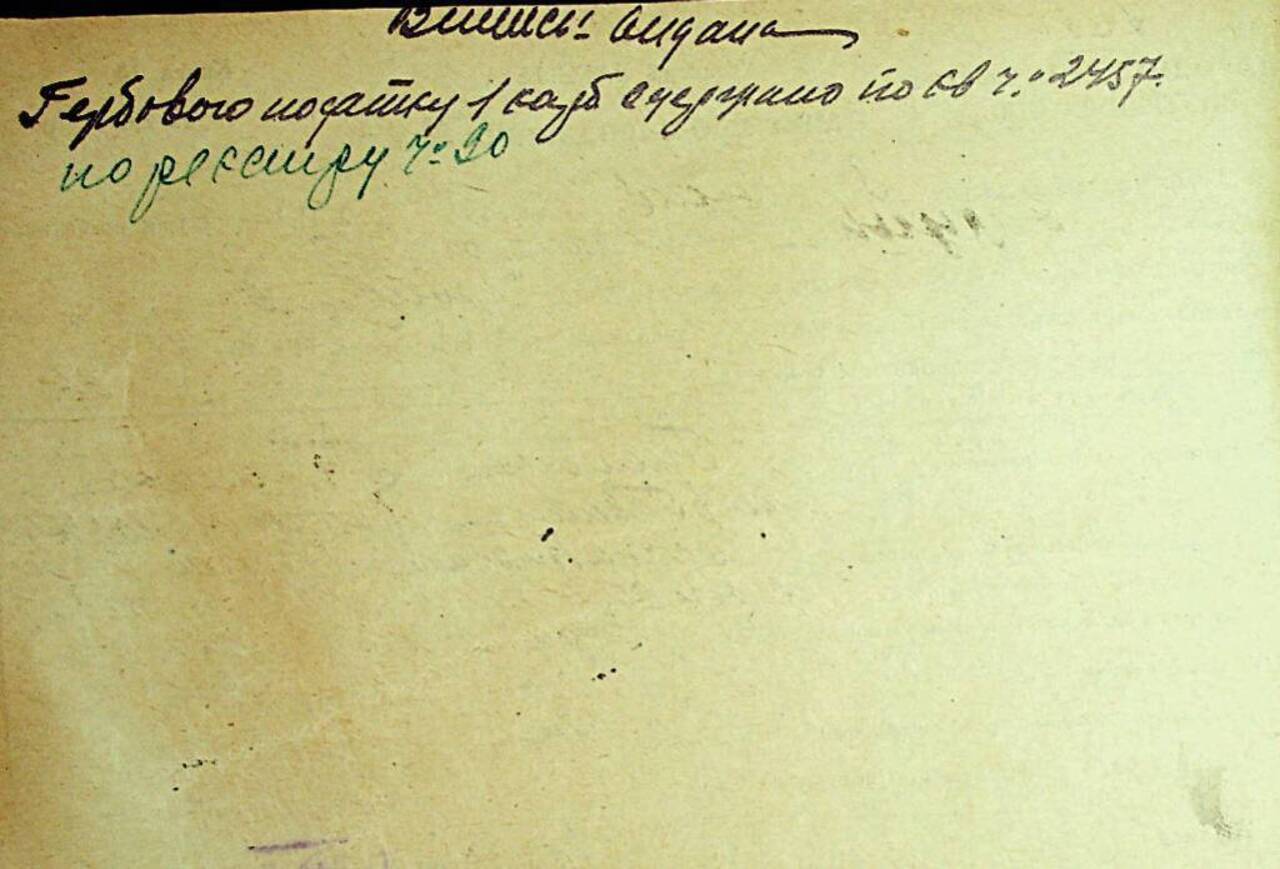 Випись видана
Гербового податку 1 карб одержано по кв ч. 2457.
по реєстру ч. 20